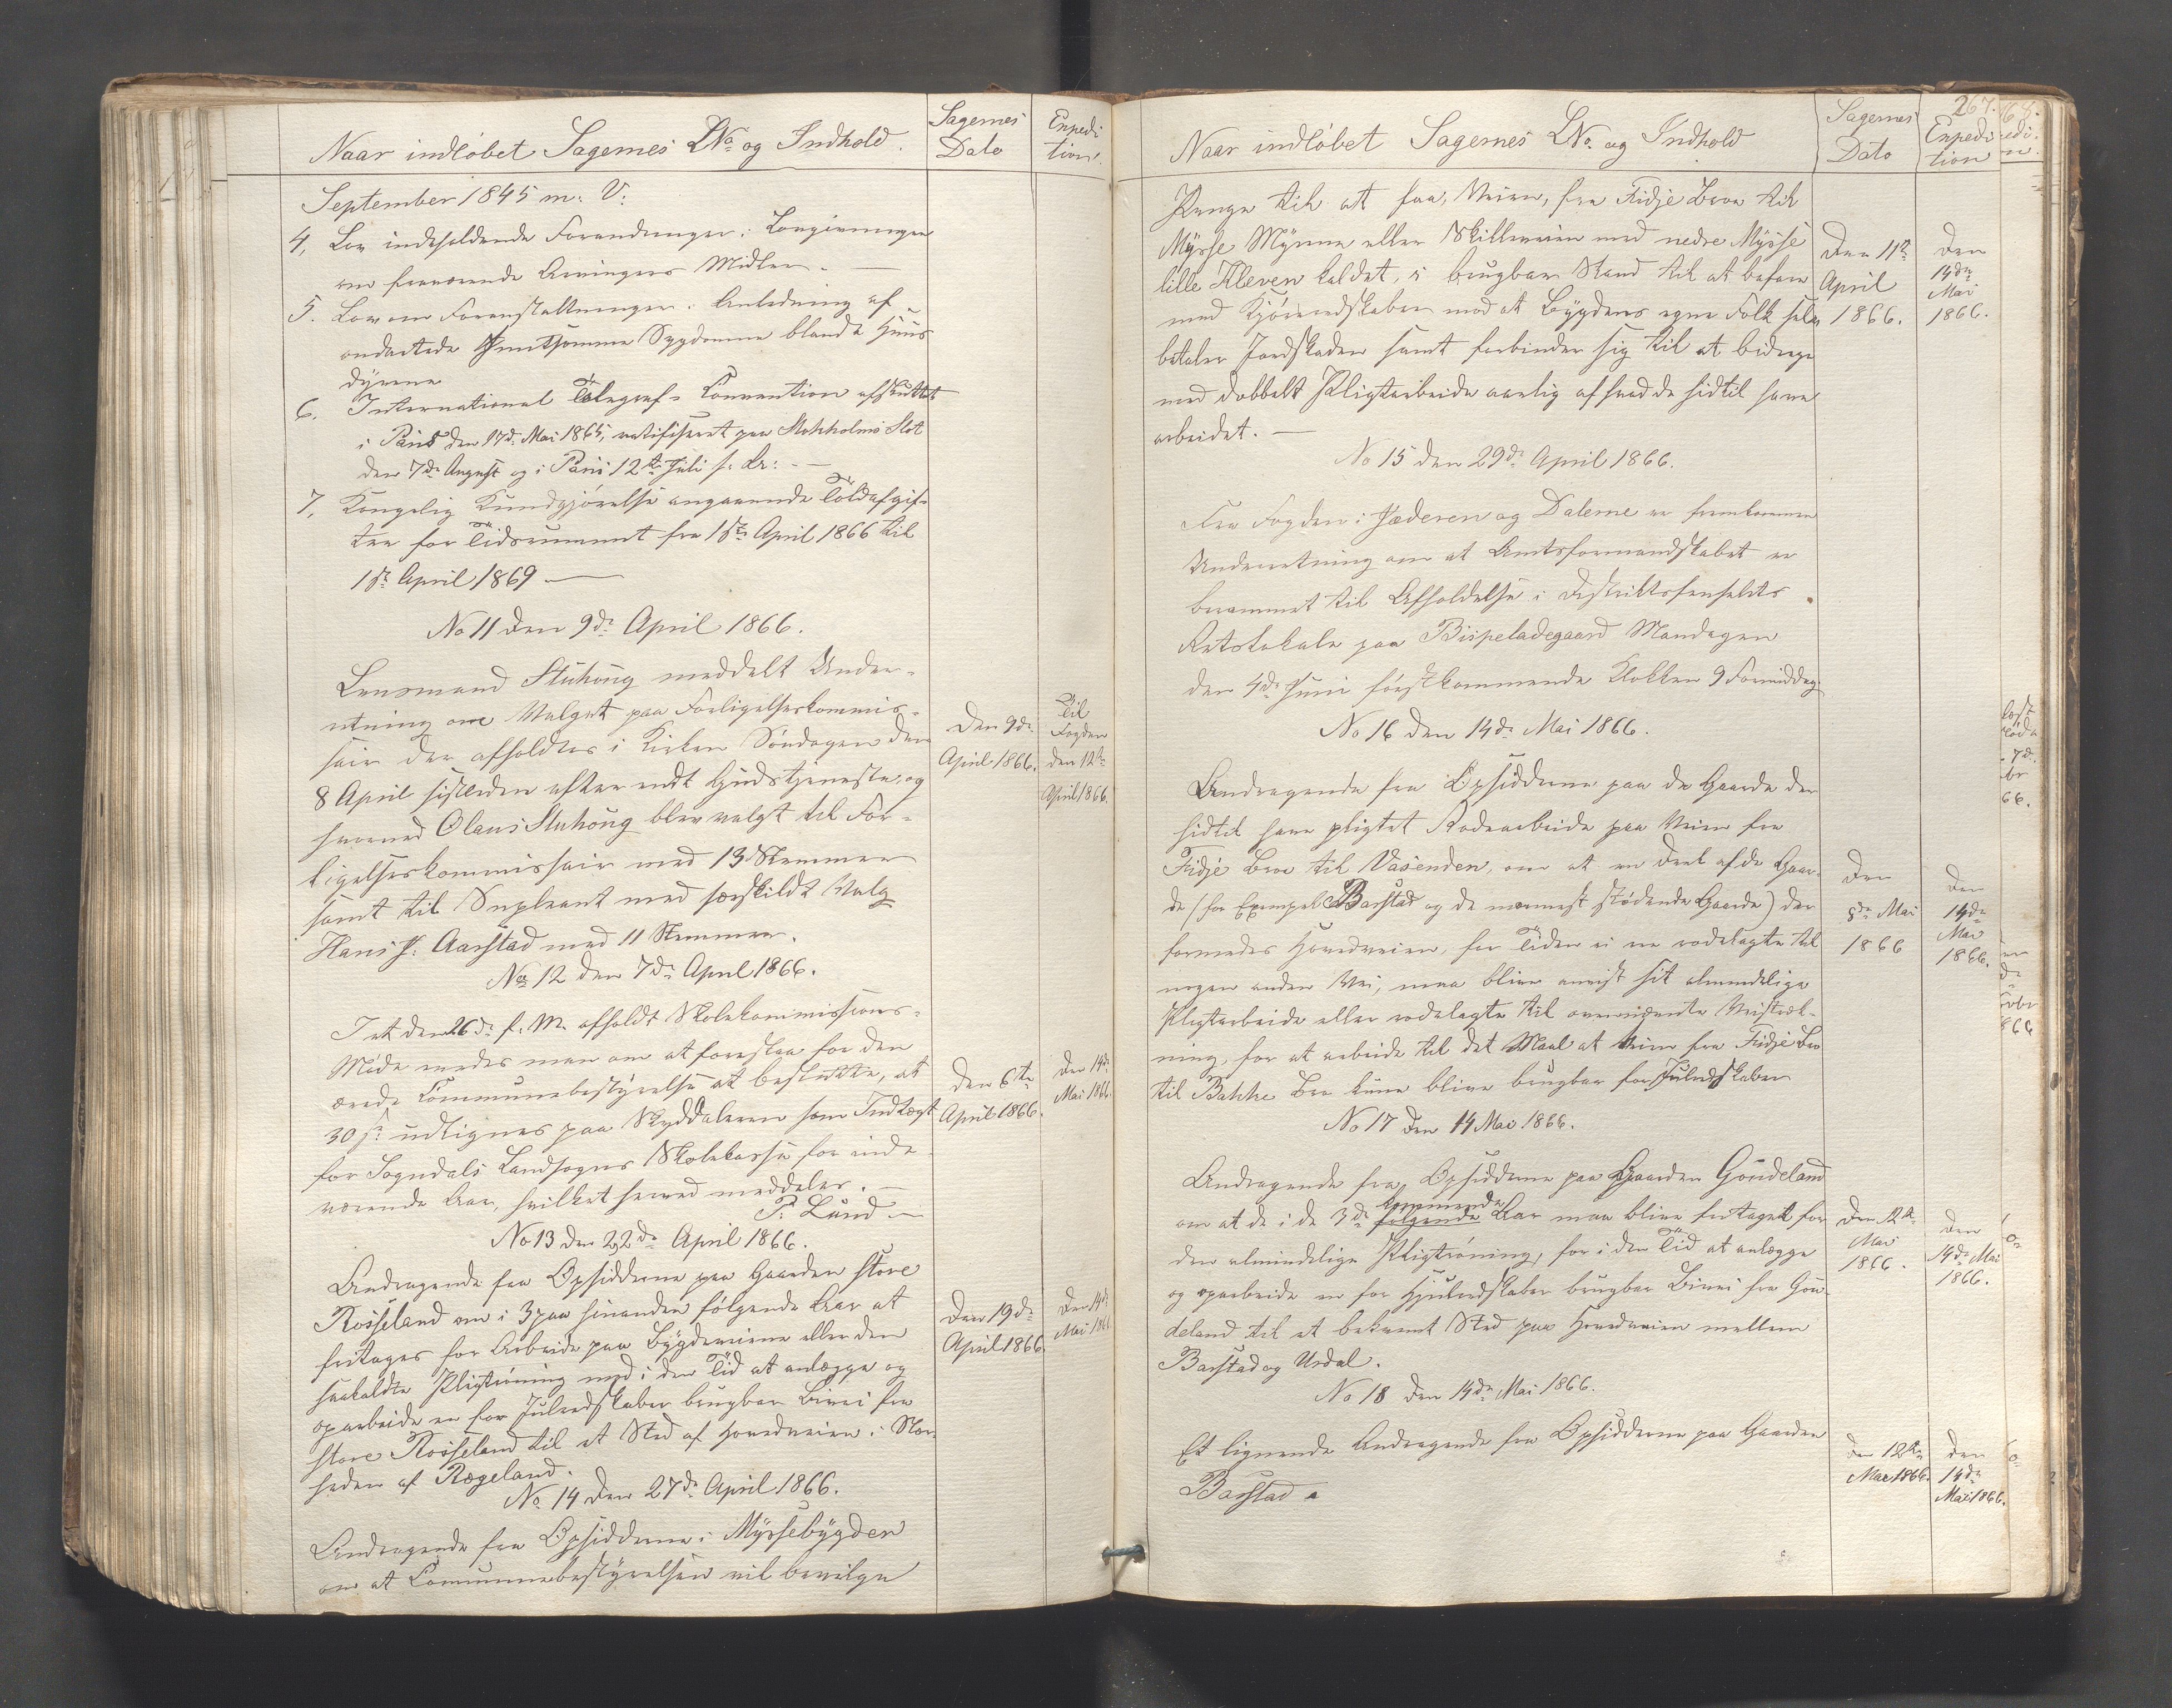 Naar indløbet Sagernes LNo og Indhold.
Sagernes
Dato
Expedi
tion.
September 1845 m: V:
4, Lov indeholdende Forandringer i Lovgivningen
om fraværende Arvingers Midler. —
5. Lov om Foranstaltninger i Anledning af
ondartede smitsomme Sygdomme blandt Huus
dyrene
6. International Telegraf-Convention afsluttet
i Paris den 17de Mai 1865, ratificeret paa Stokholms Slot
den 7de August og i Paris 12te Juli s. Ar: —
7, Kongelig Kundgjørelse angaaende Toldafgif-
ter for Tidsrummet fra 1ste April 1866 til
1ste April 1869 —
No 11 den 9de April 1866.
Lensmand Stuhoug meddelt Under-
retning om Valget paa Forligelseskommis-
sair der afholdtes i Kirken Søndagen den
8 April sidstleden efter endt Gudstjeneste, og
hvorved Olaus Stuhoug blev valgt til For-
ligelseskommissair med 13 Stemmer
samt til Supleant med særskildt Valg
Hans P. Aarstad med 11 Stemmer.
Den 9de
April 1866.
Til
Fogden
den 12te
April 1866.
No 12 den 7de April 1866.
I et den 26de f. M. afholdt Skolekommissions-
Møde enedes man om at foreslaa for den
ærede Communebestyrelse at beslutte, at
30 s. udlignes paa Skylddaleren som Indtægt
for Sogndals Landsogns Skolekasse for inde-
værende Aar, hvilket herved meddeles. —
P. Lund
Den 6te
April 1866.
Den 14de
Mai 1866.
No 13 den 22de April 1866.
Andragende fra Opsidderne paa Gaarden store
Rosseland om i 3 paa hinanden følgende Aar at
fritages for Arbeide paa Bygdeveiene eller den
saakaldte Pligtrøning mod i den Tid at anlægge og
oparbeide en for Julredskaber brugbar Bivei fra
store Rosseland til et Sted af Hovedveien i Nær-
heden af Rægeland.
Den 19de
April 1866
Den 14de
Mai 1866
No 14 den 27de April 1866.
Andragende fra Opsidderne i Myssebygden
om at Communebestyrelsen vil bevilge
267.
Naar indløbet Sagernes LNo. og Indhold
Sagernes
Dato
Expedi
tion
Penge til at faa, Veien, fra Fidje Broe til
Mysse Mynne eller Skilleveien med nedre Mysse
lille Kleven kaldet, i brugbar Stand til at befare
med Kjøreredskaber mod at Bygdens egne Folk selv
betaler Jordskaden samt forbinder sig til at bidrage
med dobbelt Pligtarbeide aarlig af hvad de hidtil have
arbeidet. —
Den 11te
April
1866.
Den
14de
Mai
1866.
No 15 den 29de April 1866.
Fra Fogden i Jæderen og Dalerne er fremkommen
Underretning om at Amtsformandskabet er
berammet til Afholdelse i Distriktsfængslets
Retslokale paa Bispeladegaard Mandagen
den 4de Juni førstkommende Klokken 9 Formiddag
No 16 den 14de Mai 1866.
Andragende fra Opsidderne paa de Gaarde der
hidtil have pligtet Rodearbeide paa Veien fra
Fidje Broe til Vasenden, om at en Deel af de Gaar-
de (for Exempel Barstad og de nærmest stødende Gaarde) der
formedes Hovedveien, for Tiden ei er rodelagte til
nogen anden Vei, maa blive anvist sit almindelige
Pligtarbeide eller rodelagte til ovennævnte Veistræk-
ning, for at arbeide til det Maal at Veien fra Fidje Bro
til Bakke Bro kune blive brugbar for Julredskaber
Den
8de Mai
1866
Den
14de
Mai
1866.
No 17 den 14 Mai 1866.
Andragende fra Opsidderne paa Gaarden Goudeland
kommende
om at de i de 3de følgende Aar maa blive fritaget for
den almindelige Pligtrøning, for i den Tid at anlægge
og oparbeide en for Hjulredskaber brugbar Bivei fra Gou-
deland til et bekvemt Sted paa Hovedveien mellem
Barstad og Urdal.
Den 12te
Mai
1866.
Den
14de Mai
1866.
No 18 den 14de Mai 1866.
Et lignende Andragende fra Opsidderne paa Gaarden
Barstad
Den 12te
Mai 1866.
Den
14de
Mai 1866.